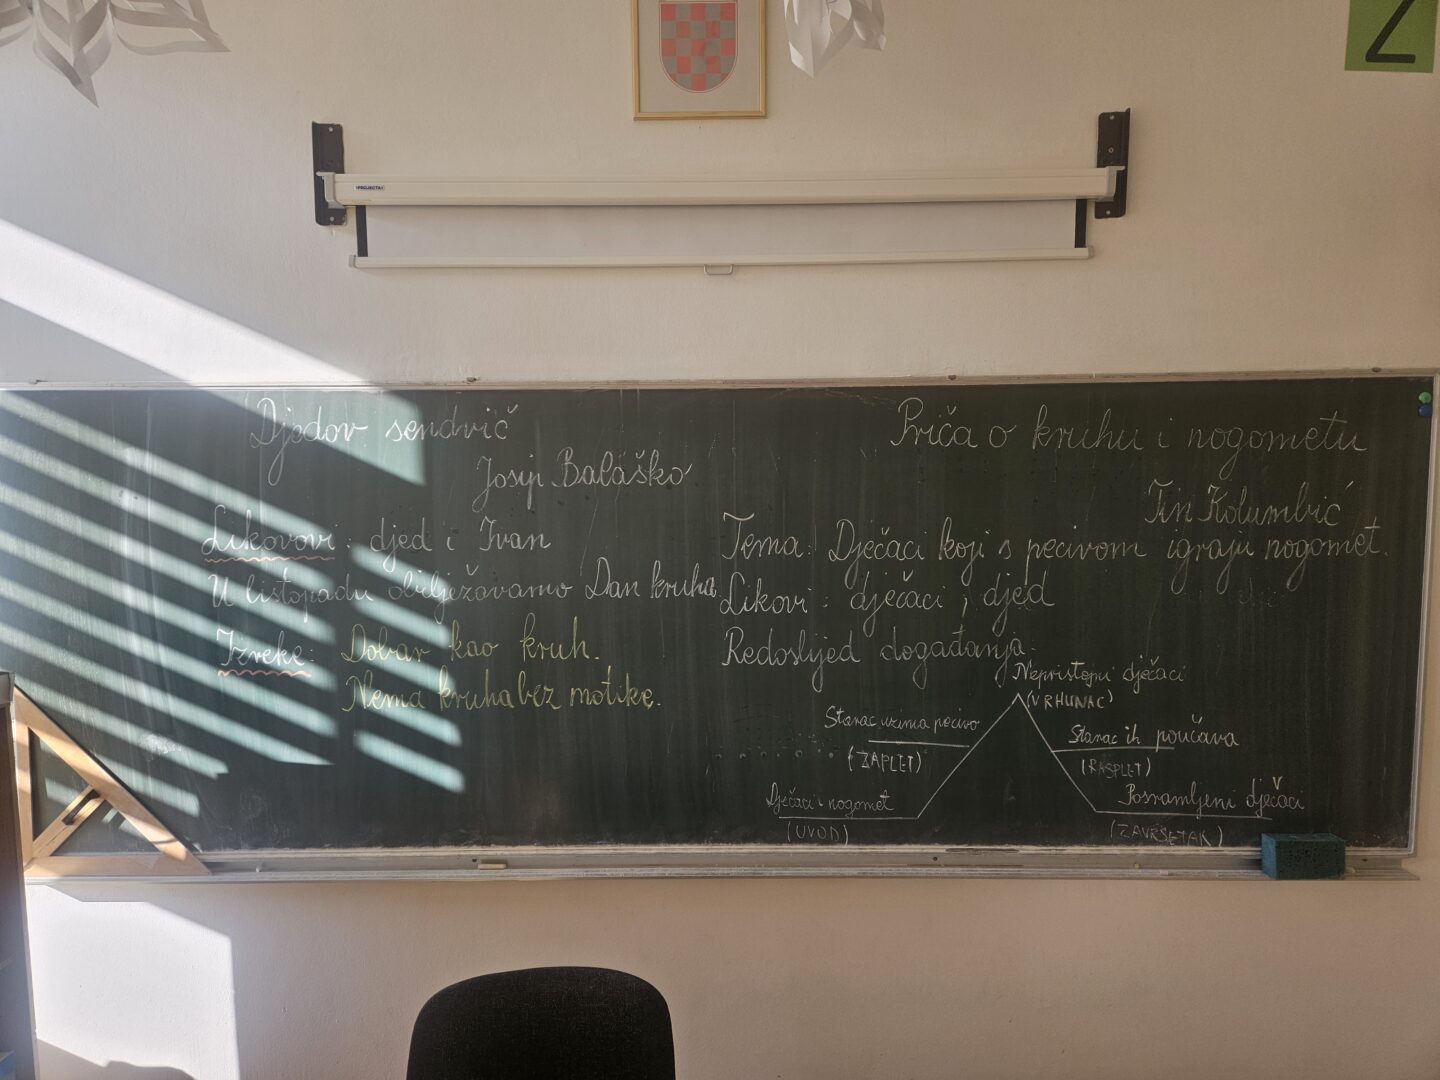 PROJECTA
Z
Djedov sendvič
Josip Balaško
Likovovi: djed i Ivan
U listopadu obilježavamo Dan kruha
Izreke: Dobar kao kruh.
Nema kruha bez motike.
Priča o kruhu i nogometu
Tin Kolumbić
Tema: Dječaci koji s pecivom igraju nogomet.
Likovi: dječaci, djed
Redoslijed događanja:
Nepristojni dječaci
(VRHUNAC)
Starac uzima pecivo
(ZAPLET)
Starac ih poučava
(RASPLET)
Dječaci i nogomet
(UVOD)
Posramljeni dječaci
(ZAVRŠETAK)